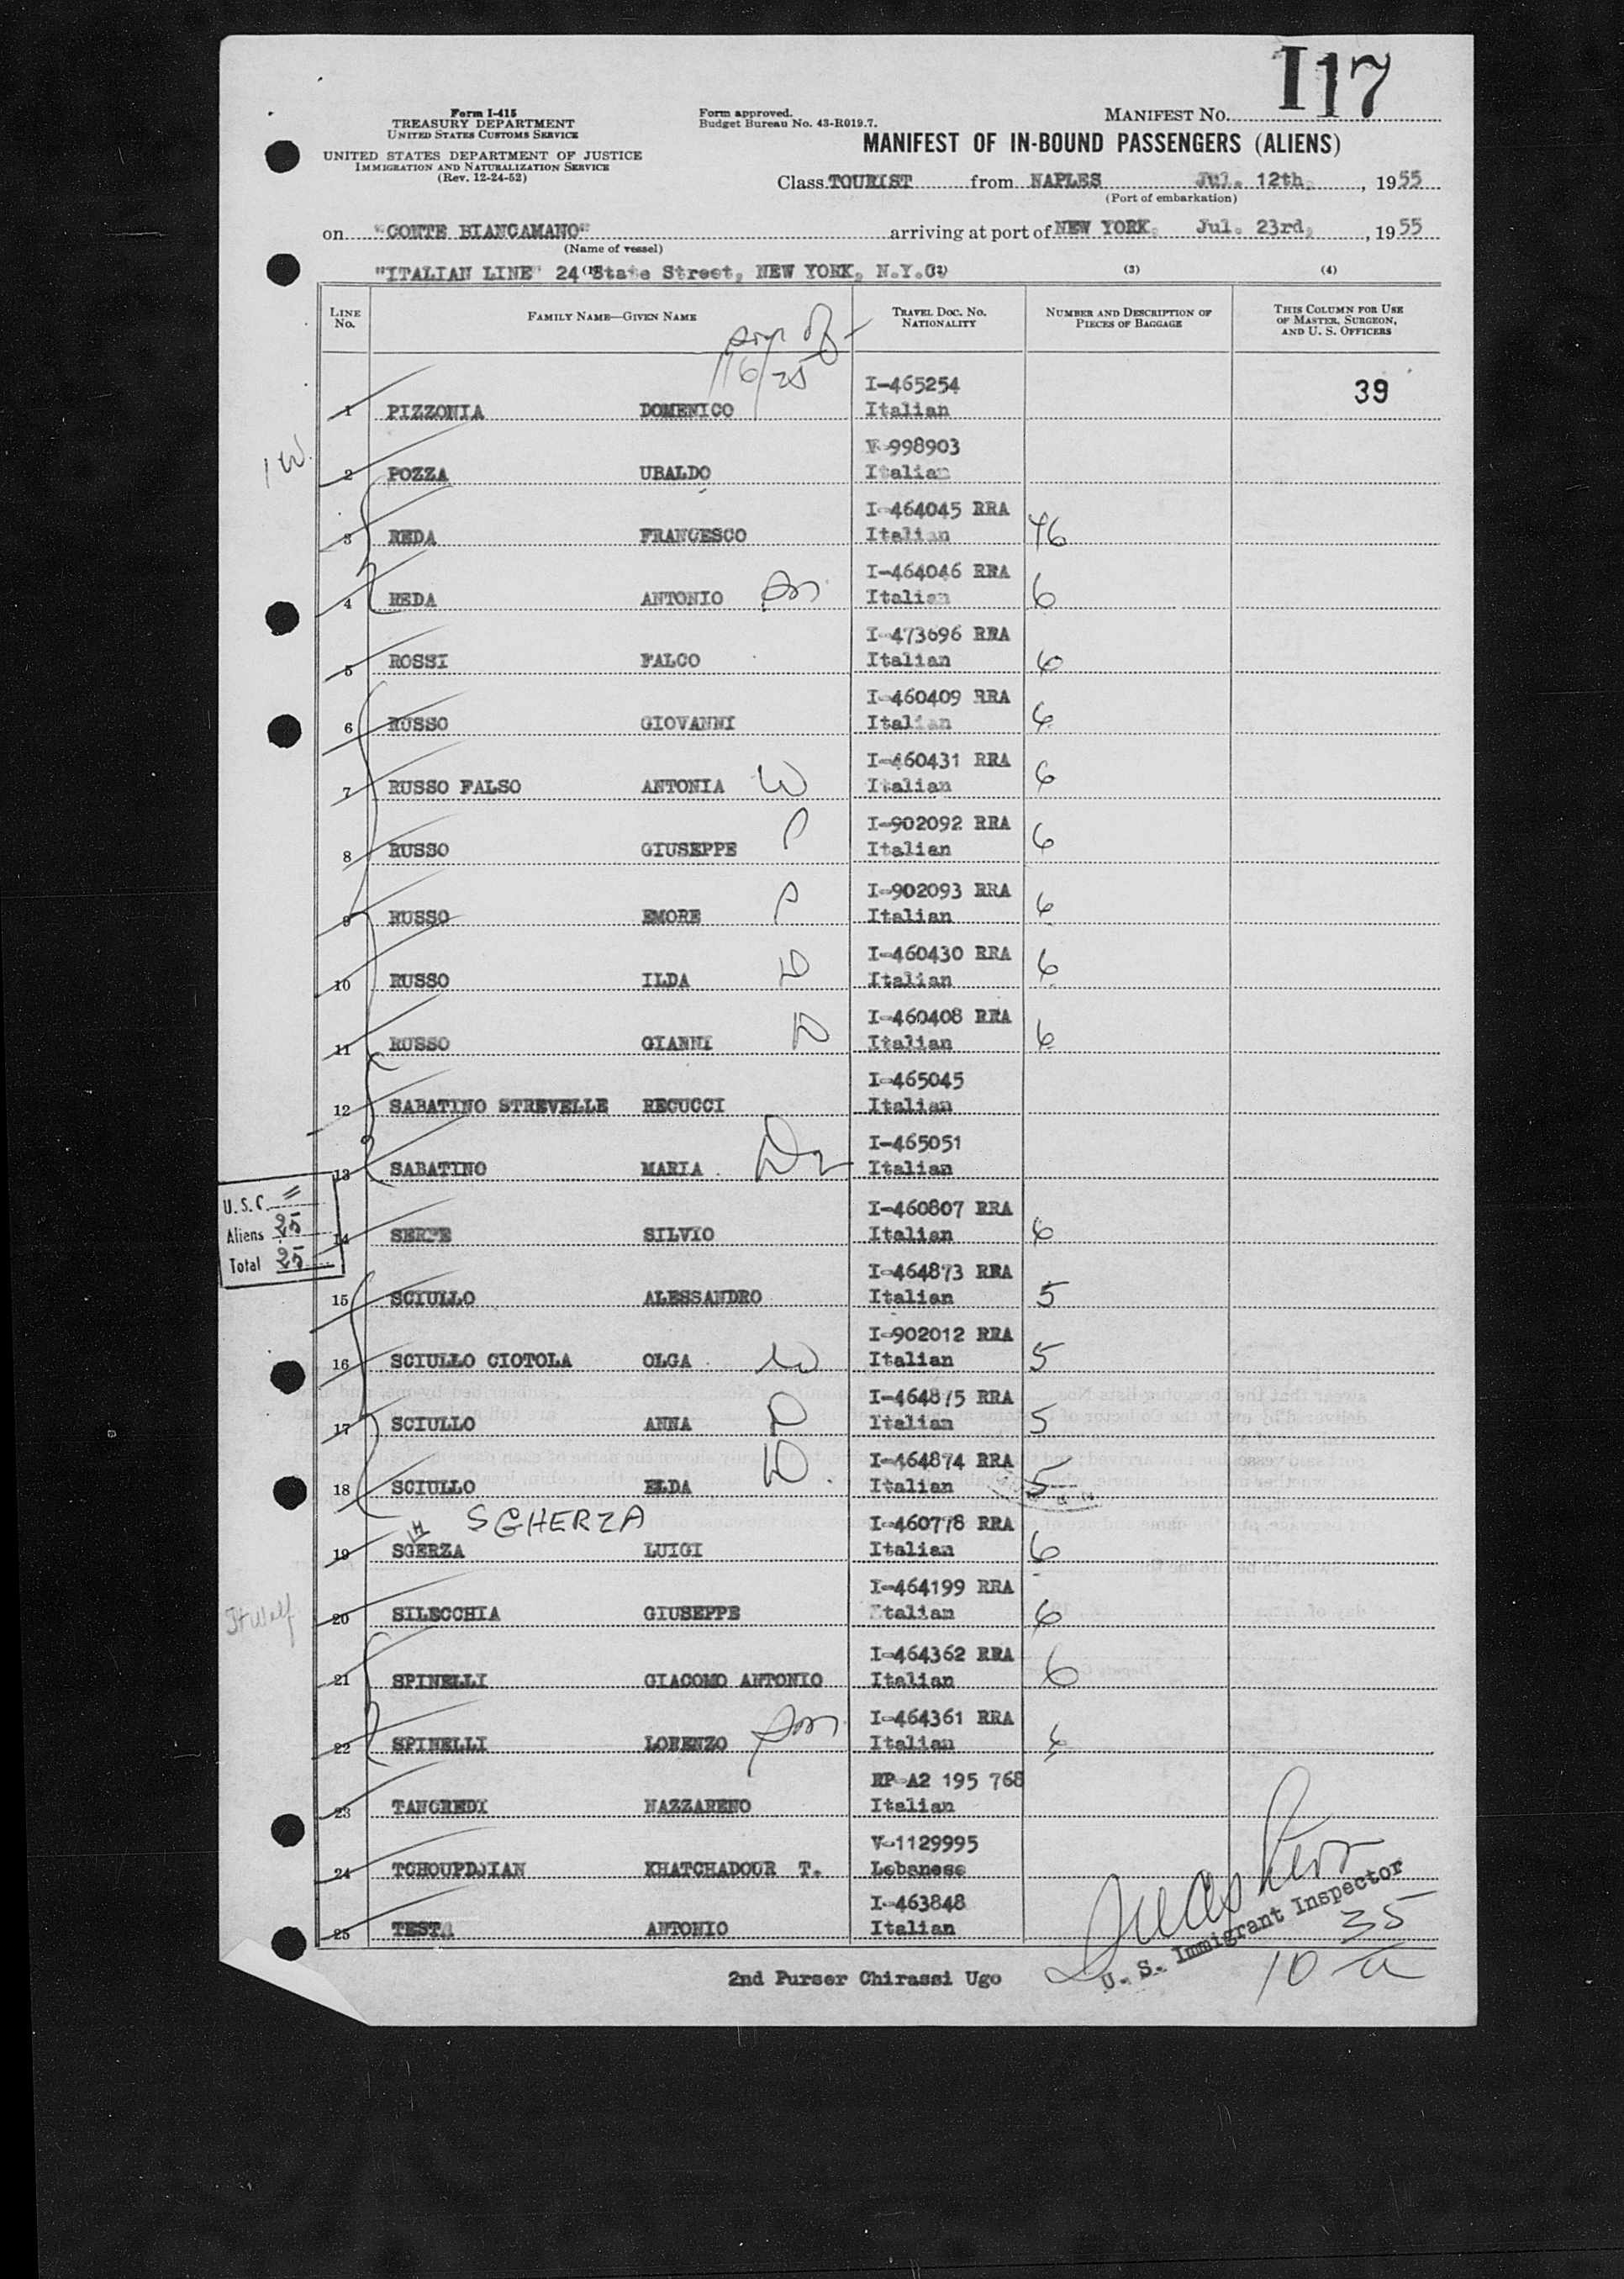 I17
Form I-415
TREASURY DEPARTMENT
UNITED STATES CUSTOMS SERVICE
UNITED STATES DEPARTMENT OF JUSTICE
IMMIGRATION AND NATURALIZATION SERVICE
(Rev. 12-24-52)
Form approved.
Budget Bureau No. 43-R019.7.
MANIFEST NO.
MANIFEST OF IN-BOUND PASSENGERS (ALIENS)
Class TOURIST from NAPLES Jul. 12th, , 1955
(Port of embarkation)
on "CONTE BIANCAMANO" arriving at port of NEW YORK, Jul. 23rd, , 1955
(Name of vessel)
"ITALIAN LINE" 24 (1) State Street, NEW YORK, N.Y.C. (2) (3) (4)
LINE No. FAMILY NAME—GIVEN NAME TRAVEL DOC. NO. NATIONALITY NUMBER AND DESCRIPTION OF PIECES OF BAGGAGE THIS COLUMN FOR USE OF MASTER, SURGEON, AND U. S. OFFICERS
I-465254 39
1 PIZZONIA DOMENICO Italian
1W.
998903
2 POZZA UBALDO Italian
I-464045 RRA
3 REDA FRANCESCO Italian
I-464046 RRA
4 REDA ANTONIO Italian 6
I-473696 RRA
5 ROSSI FALCO Italian 6
I-460409 RRA
6 RUSSO GIOVANNI Italian 6
I-460431 RRA
7 RUSSO FALSO ANTONIA W Italian 6
I-902092 RRA
8 RUSSO GIUSEPPE Italian 6
I-902093 RRA
9 RUSSO EMORE Italian 6
I-460430 RRA
10 RUSSO ILDA D Italian 6
I-460408 RRA
11 RUSSO GIANNI D Italian 6
I-465045
12 SABATINO STREVELLE RECUCCI Italian
I-465051
13 SABATINO MARIA Italian
U.S.C. =
Aliens 25
Total 25
I-460807 RRA
14 SERPE SILVIO Italian 6
I-464873 RRA
15 SCIULLO ALESSANDRO Italian 5
I-902012 RRA
16 SCIULLO CIOTOLA OLGA W Italian 5
I-464875 RRA
17 SCIULLO ANNA D Italian 5
I-464874 RRA
18 SCIULLO ELDA D Italian 5
SGHERZA I-460778 RRA
H
19 SGERZA LUIGI Italian 6
I-464199 RRA
20 SILECCHIA GIUSEPPE Italian 6
I-464362 RRA
21 SPINELLI GIACOMO ANTONIO Italian 6
I-464361 RRA
22 SPINELLI LORENZO son Italian 6
RP-A2 195 768
23 TANCREDI NAZZARENO Italian
V-1129995
24 TCHOUPDJIAN KHATCHADOUR T. Lebanese
I-463848
25 TESTA ANTONIO Italian
U. S. Immigrant Inspector
10 35 a
2nd Purser Chirassi Ugo